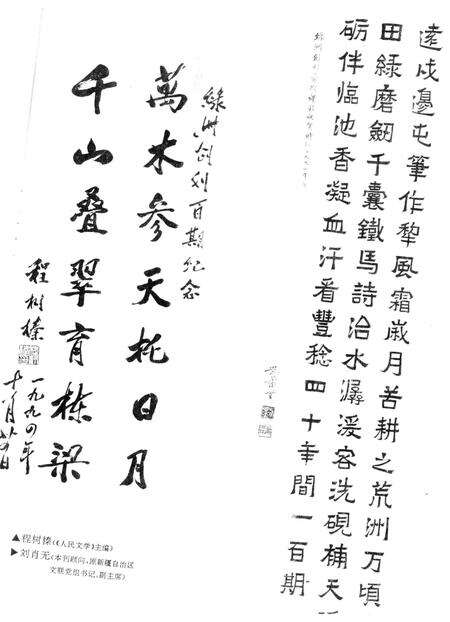 遠戍邊屯筆作犂風霜歲月苦耕之荒洲万頃
田綠磨劒千囊鐵馬詩治水潺湲容洗硯補天
砺伴臨池香凝血汗看豐稔四十年間一百期
綠洲创刊百期纪念
萬木參天托日月
千山叠翠育栋梁
程树榛
一九九四年
十月廿四日
▲程树榛(《人民文学》主编)
▶刘肖无(本刊顾问,原新疆自治区
文联党组书记、副主席)